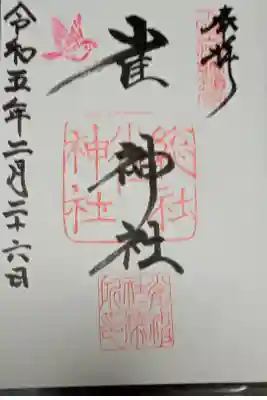 奉拝
雀神社
総社
神社
令和五年二月二十六日